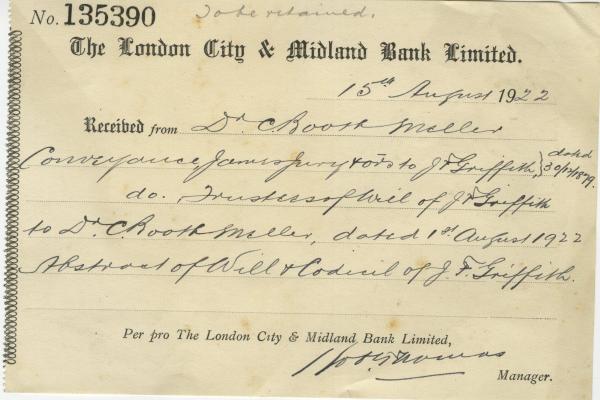 No. 135390 To be retained.
The London City & Midland Bank Limited.
15th August 1922
Received from Dr C Booth Meller
Conveyance James Jury & ors to J F Griffith, } dated 30/12/1879.
do. Trustees of Will of J F Griffith
to Dr. C. Booth Meller, dated 1st August 1922
Abstract of Will & Codicil of J. F. Griffith.
Per pro The London City & Midland Bank Limited,
Thomas
Manager.